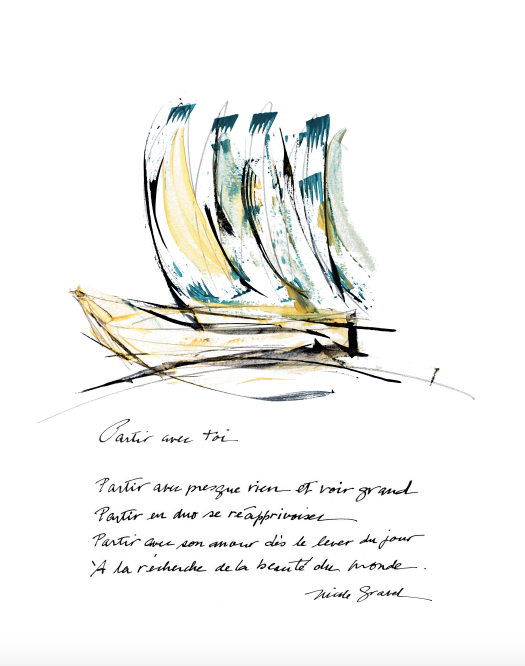 Partir avec toi
Partir avec presque rien et voir grand
Partir en duo se réapprivoiser
Partir avec son amour dès le lever du jour
À la recherche de la beauté du monde.
Nicole